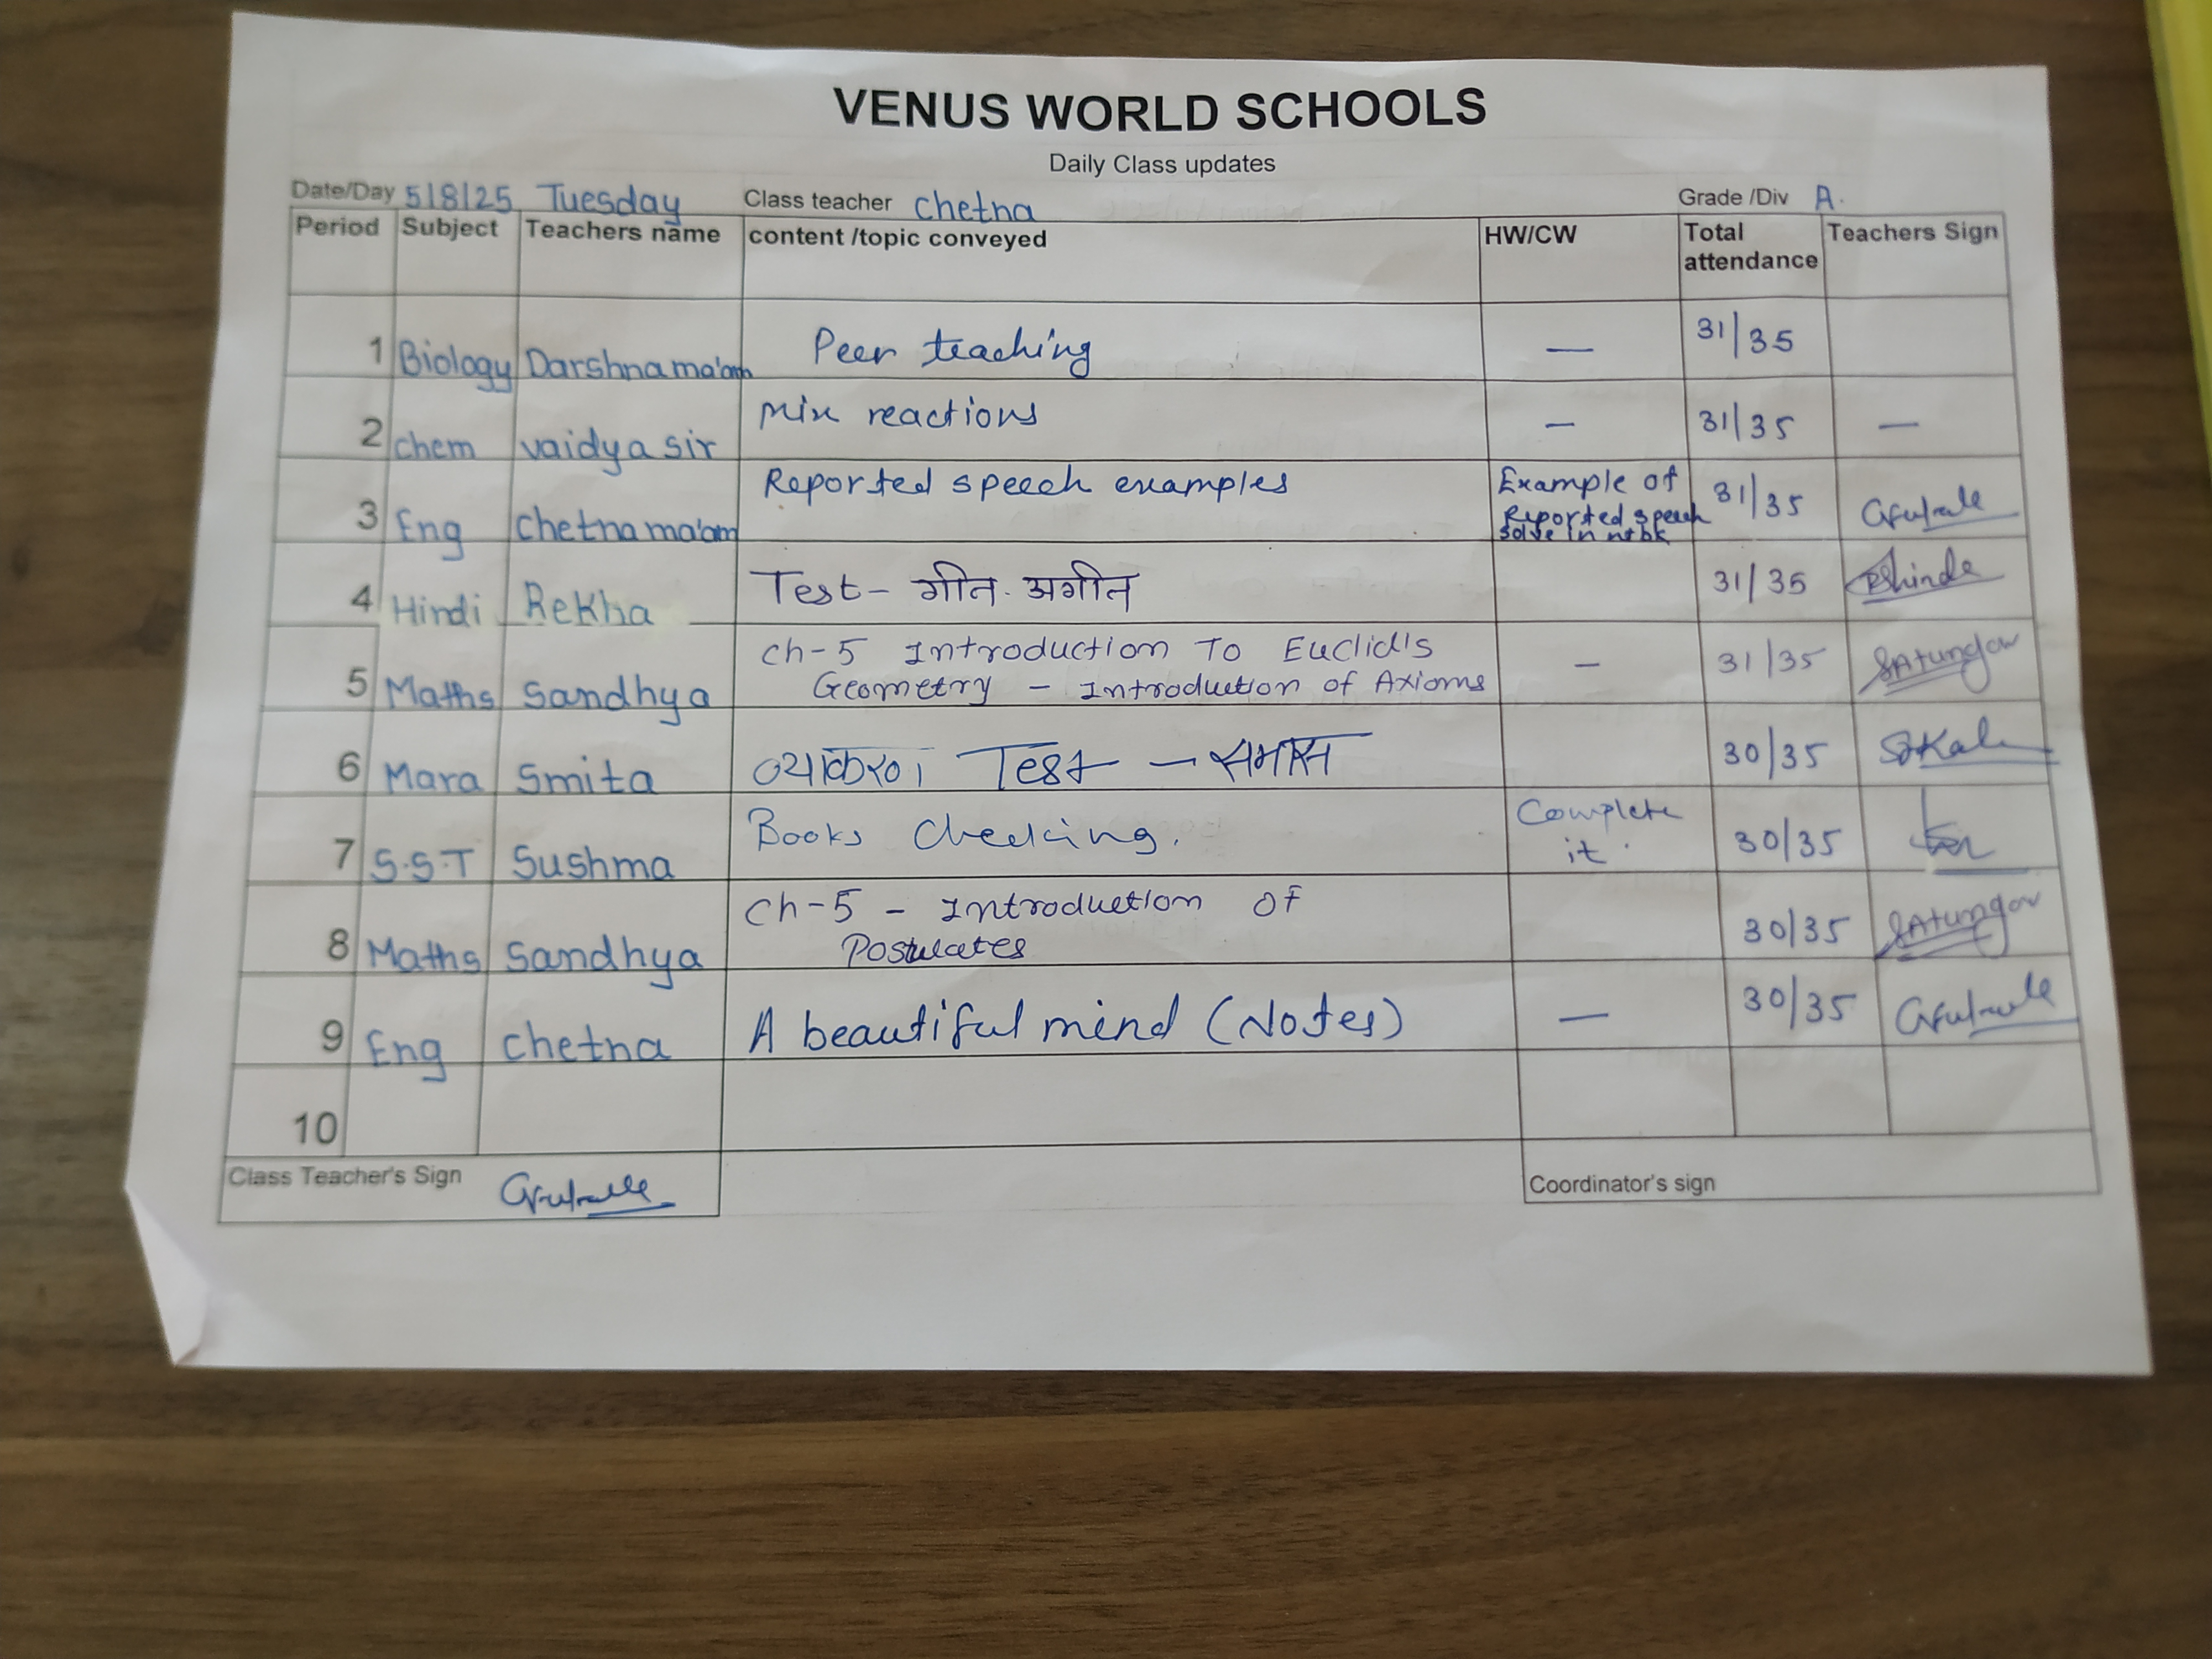 VENUS WORLD SCHOOLS
Daily Class updates
Date/Day 5/8/25 Tuesday Class teacher chetna Grade /Div A.
Period Subject Teachers name content /topic conveyed HW/CW Total attendance Teachers Sign
1 Biology Darshna ma'am Peer teaching — 31/35
2 chem vaidya sir Mix reactions — 31/35 —
3 Eng chetna ma'am Reported speech examples Example of Reported speech solve in ntbk 31/35
4 Hindi Rekha Test- गीत. अगीत 31/35 RShinde
5 Maths Sandhya ch-5 Introduction To Euclid's
Geometry - Introduction of Axioms — 31/35
6 Mara Smita व्याकरण Test - समास 30/35 SKale
7 S.S.T Sushma Books Checking. Complete it. 30/35
8 Maths Sandhya Ch-5 - Introduction Of
Postulates 30/35
9 Eng chetna A beautiful mind (Notes) — 30/35
10
Class Teacher's Sign Coordinator's sign